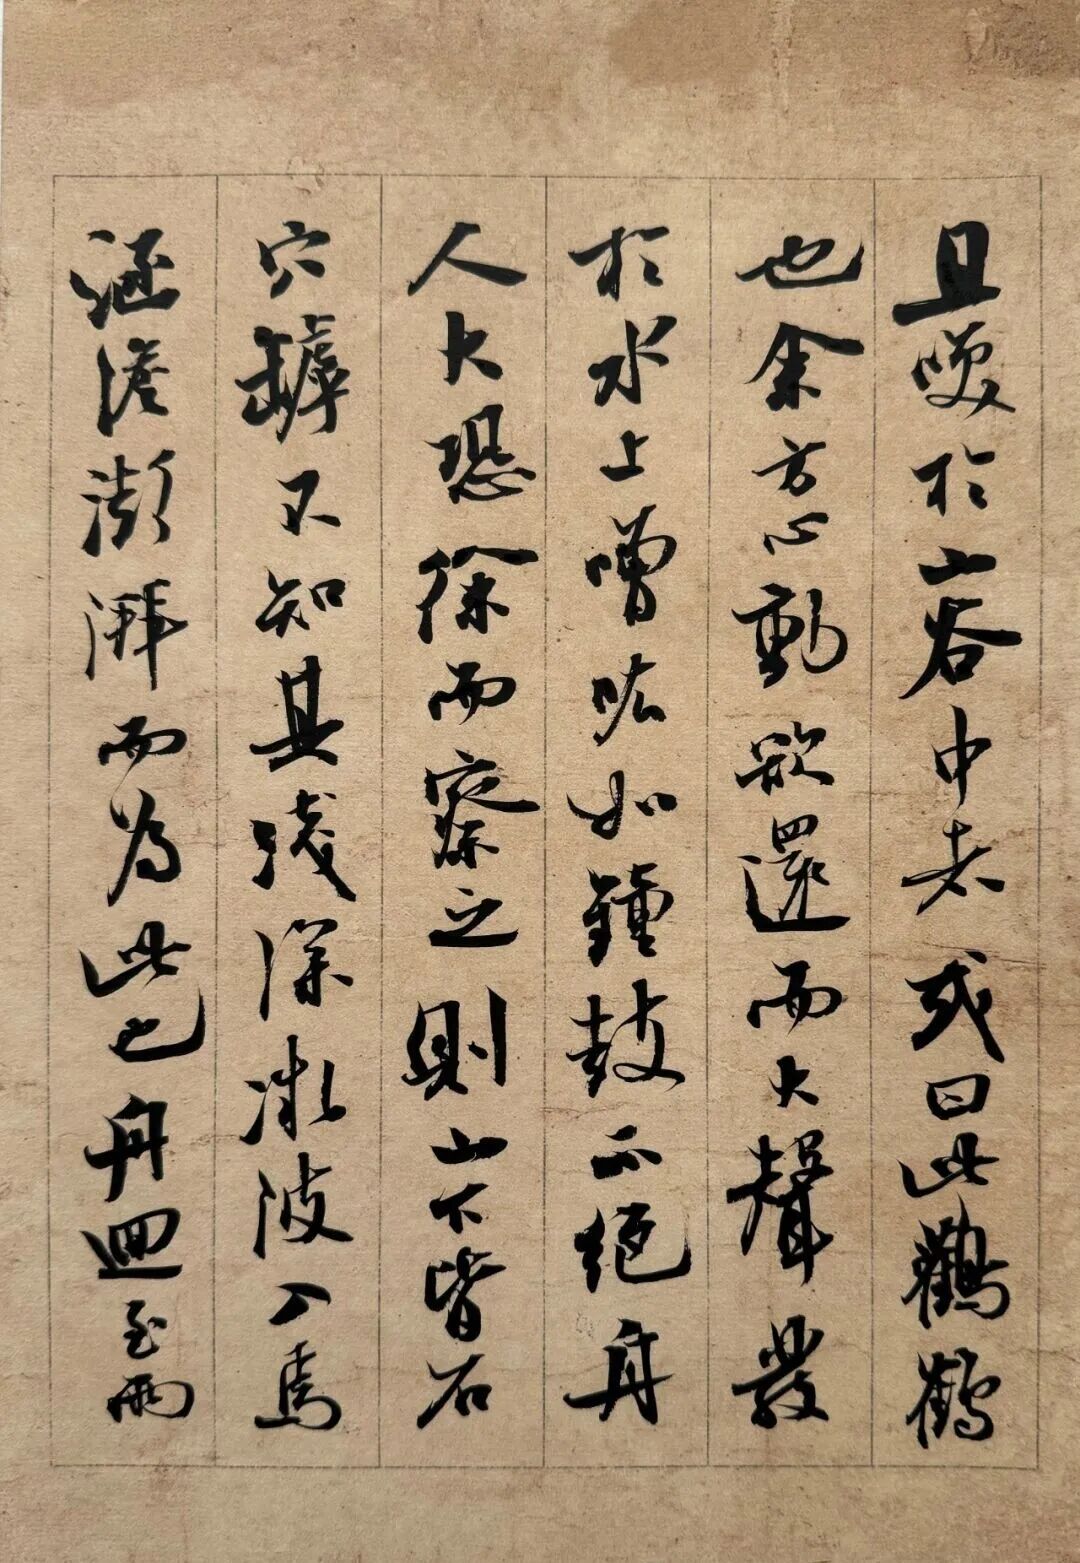 且咲於山谷中者或曰此鸛鶴
也余方心動欲還而大聲發
於水上噌吰如鐘鼓不絕舟
人大恐徐而察之則山下皆石
穴罅不知其淺深微波入焉
涵澹澎湃而為此也舟迴至兩